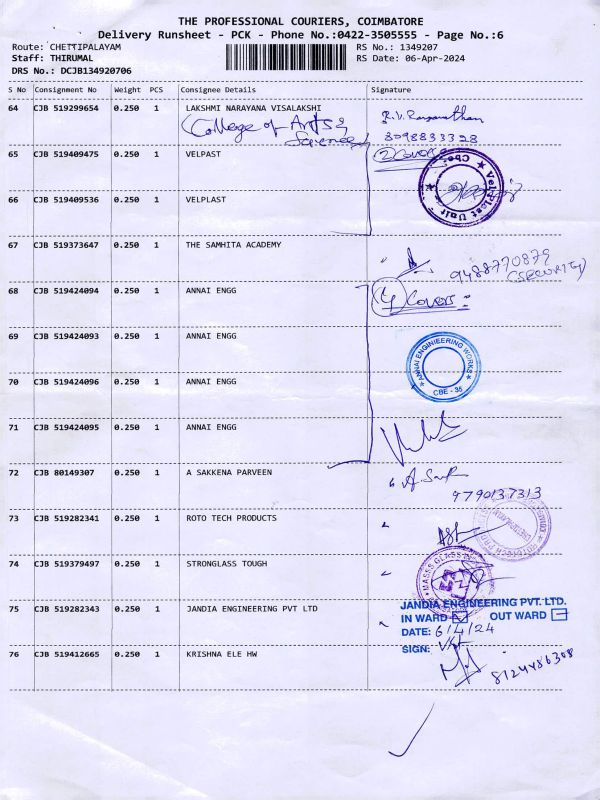 THE PROFESSIONAL COURIERS, COIMBATORE
Delivery Runsheet - PCK - Phone No.:0422-3505555 - Page No.:6
Route: CHETTIPALAYAM
RS No.: 1349207
Staff: THIRUMAL
RS Date: 06-Apr-2024
DRS No.: DCJB134920706
S No Consignment No Weight PCS Consignee Details Signature
64 CJB 519299654 0.250 1 LAKSHMI NARAYANA VISALAKSHI
College of Arts &
Science
8098833328
65 CJB 519409475 0.250 1 VELPAST
2 Covers
66 CJB 519409536 0.250 1 VELPLAST
67 CJB 519373647 0.250 1 THE SAMHITA ACADEMY
9488770879
(SECURITY)
68 CJB 519424094 0.250 1 ANNAI ENGG
4 Covers
69 CJB 519424093 0.250 1 ANNAI ENGG
ANNAI ENGINEERING WORKS
CBE - 35
70 CJB 519424096 0.250 1 ANNAI ENGG
71 CJB 519424095 0.250 1 ANNAI ENGG
72 CJB 80149307 0.250 1 A SAKKENA PARVEEN
9790137313
73 CJB 519282341 0.250 1 ROTO TECH PRODUCTS
74 CJB 519379497 0.250 1 STRONGLASS TOUGH
75 CJB 519282343 0.250 1 JANDIA ENGINEERING PVT LTD
JANDIA ENGINEERING PVT. LTD.
IN WARD OUT WARD
DATE: 6/4/24
SIGN:
76 CJB 519412665 0.250 1 KRISHNA ELE HW
8124486308